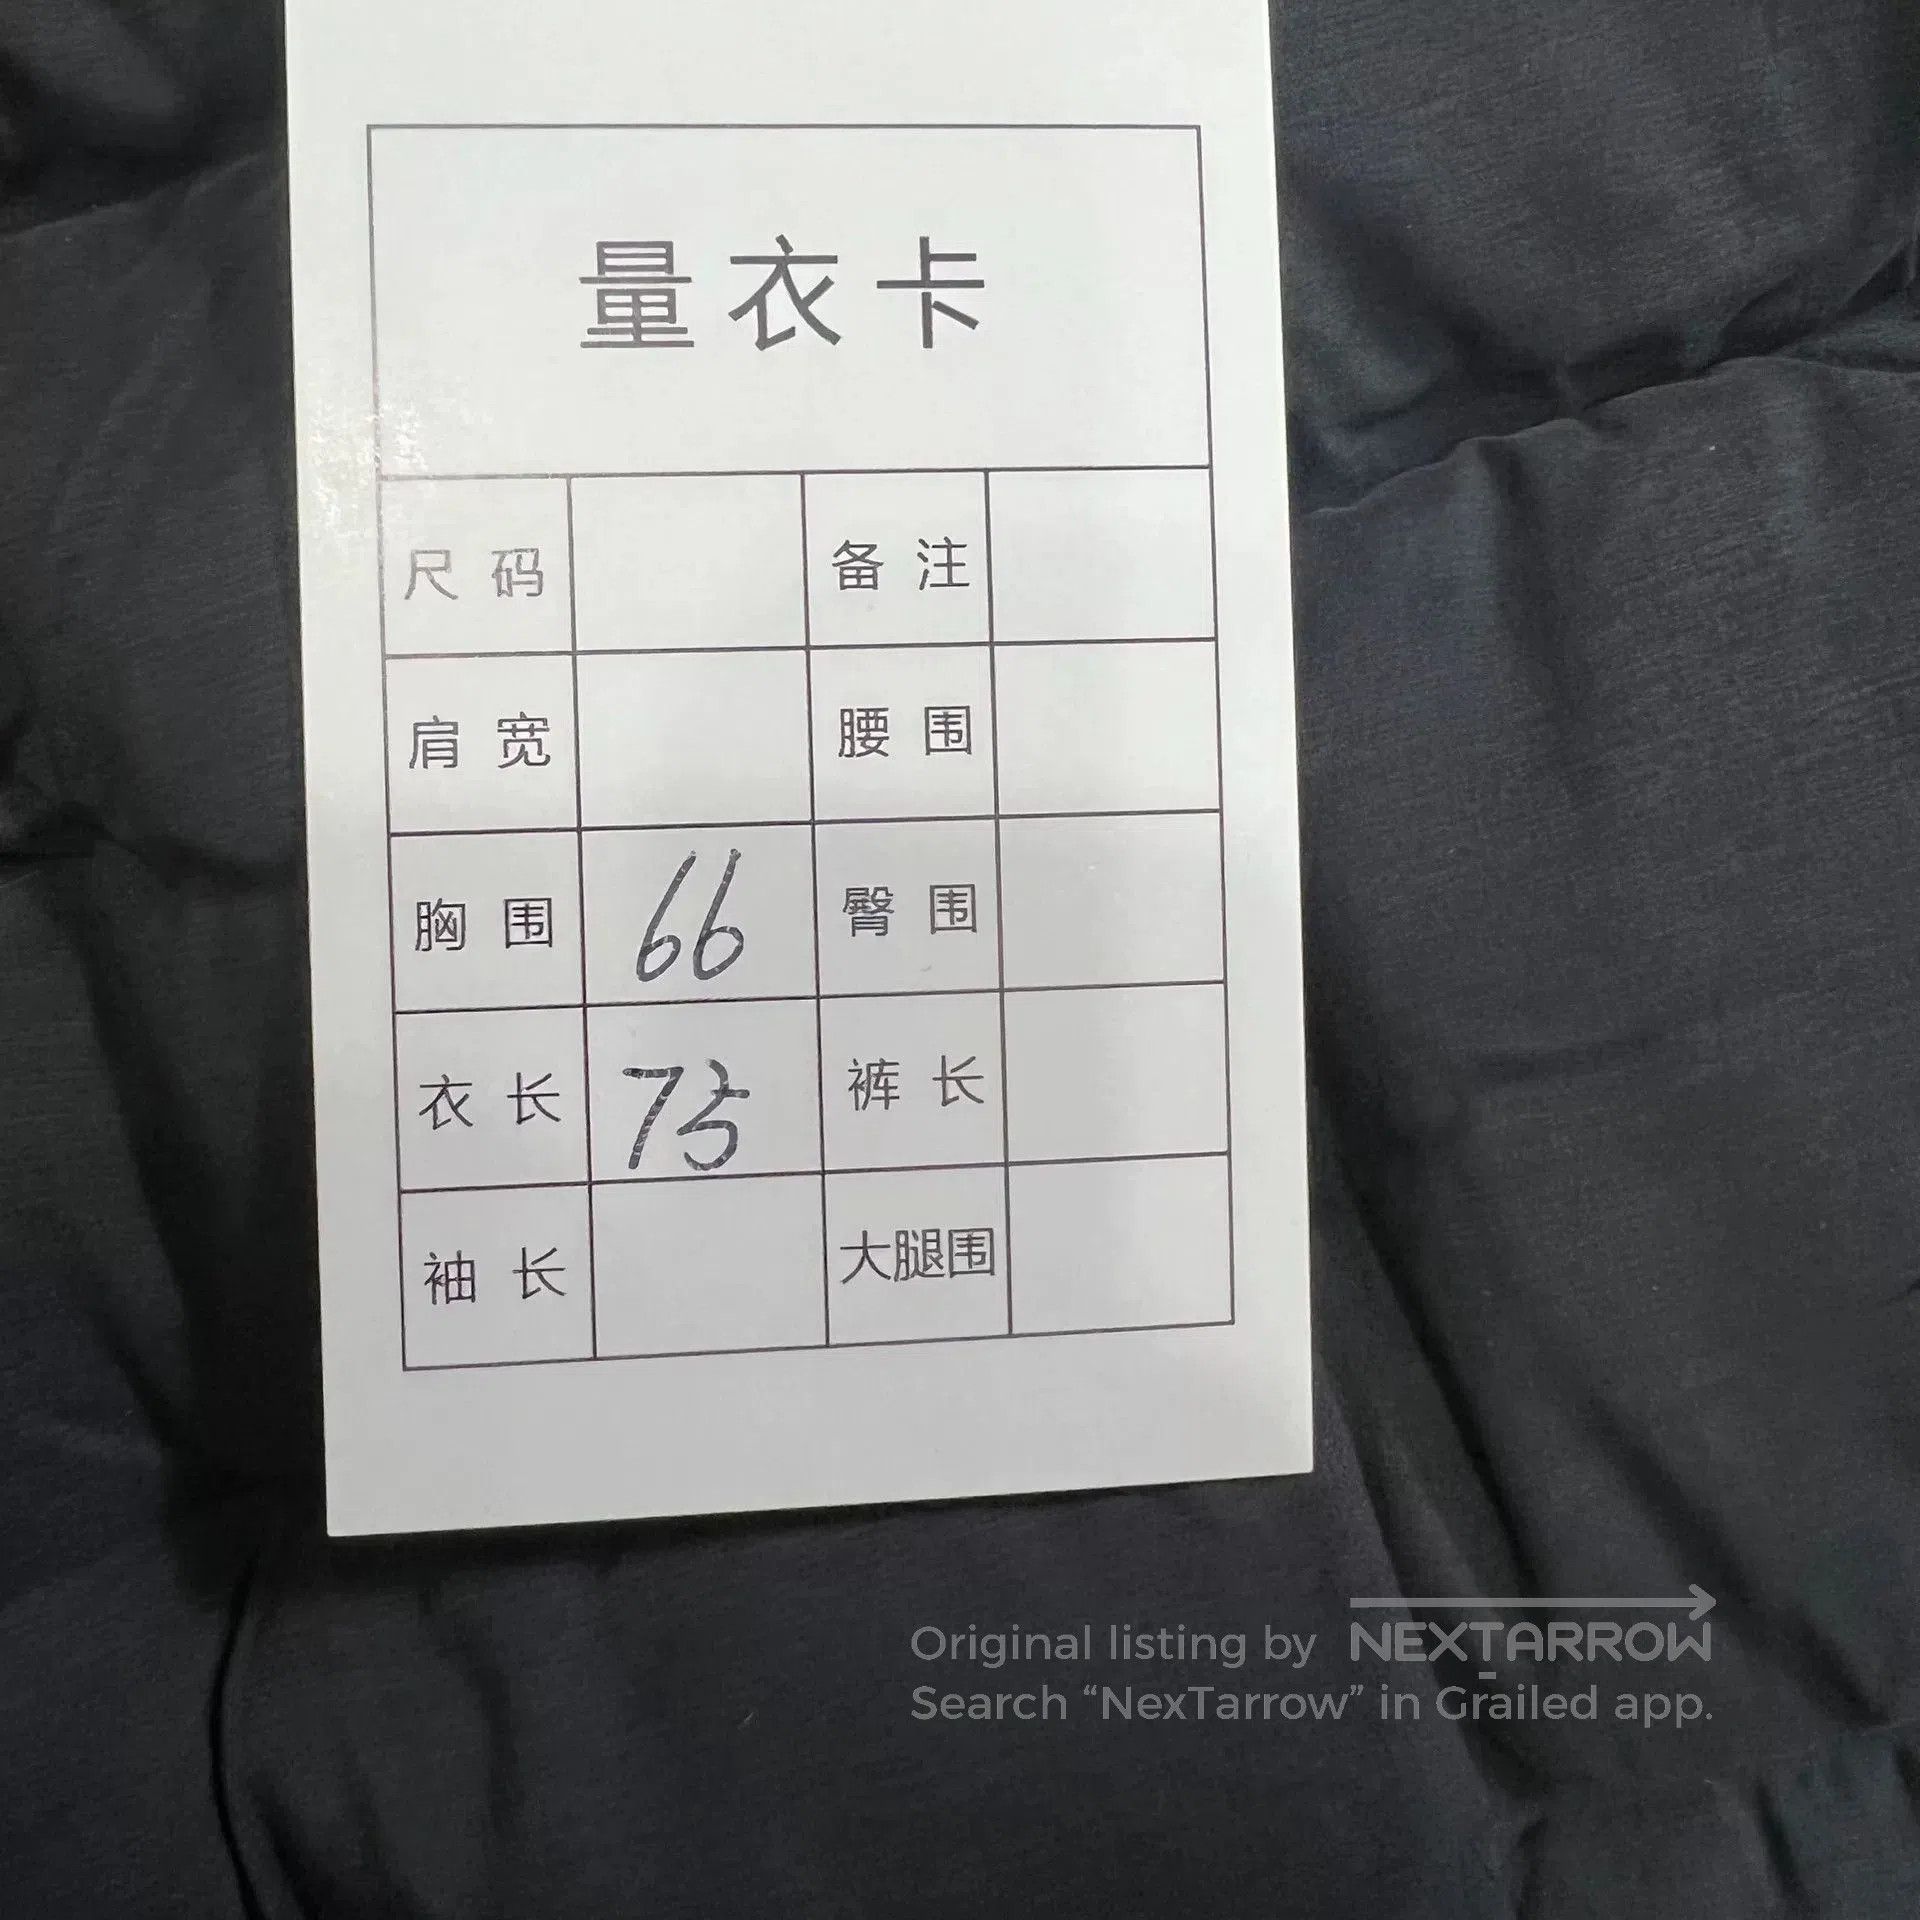 量衣卡
尺码 备注
肩宽 腰围
胸围 66 臀围
衣长 75 裤长
袖长 大腿围
Original listing by NEXTARROW
Search “NexTarrow” in Grailed app.